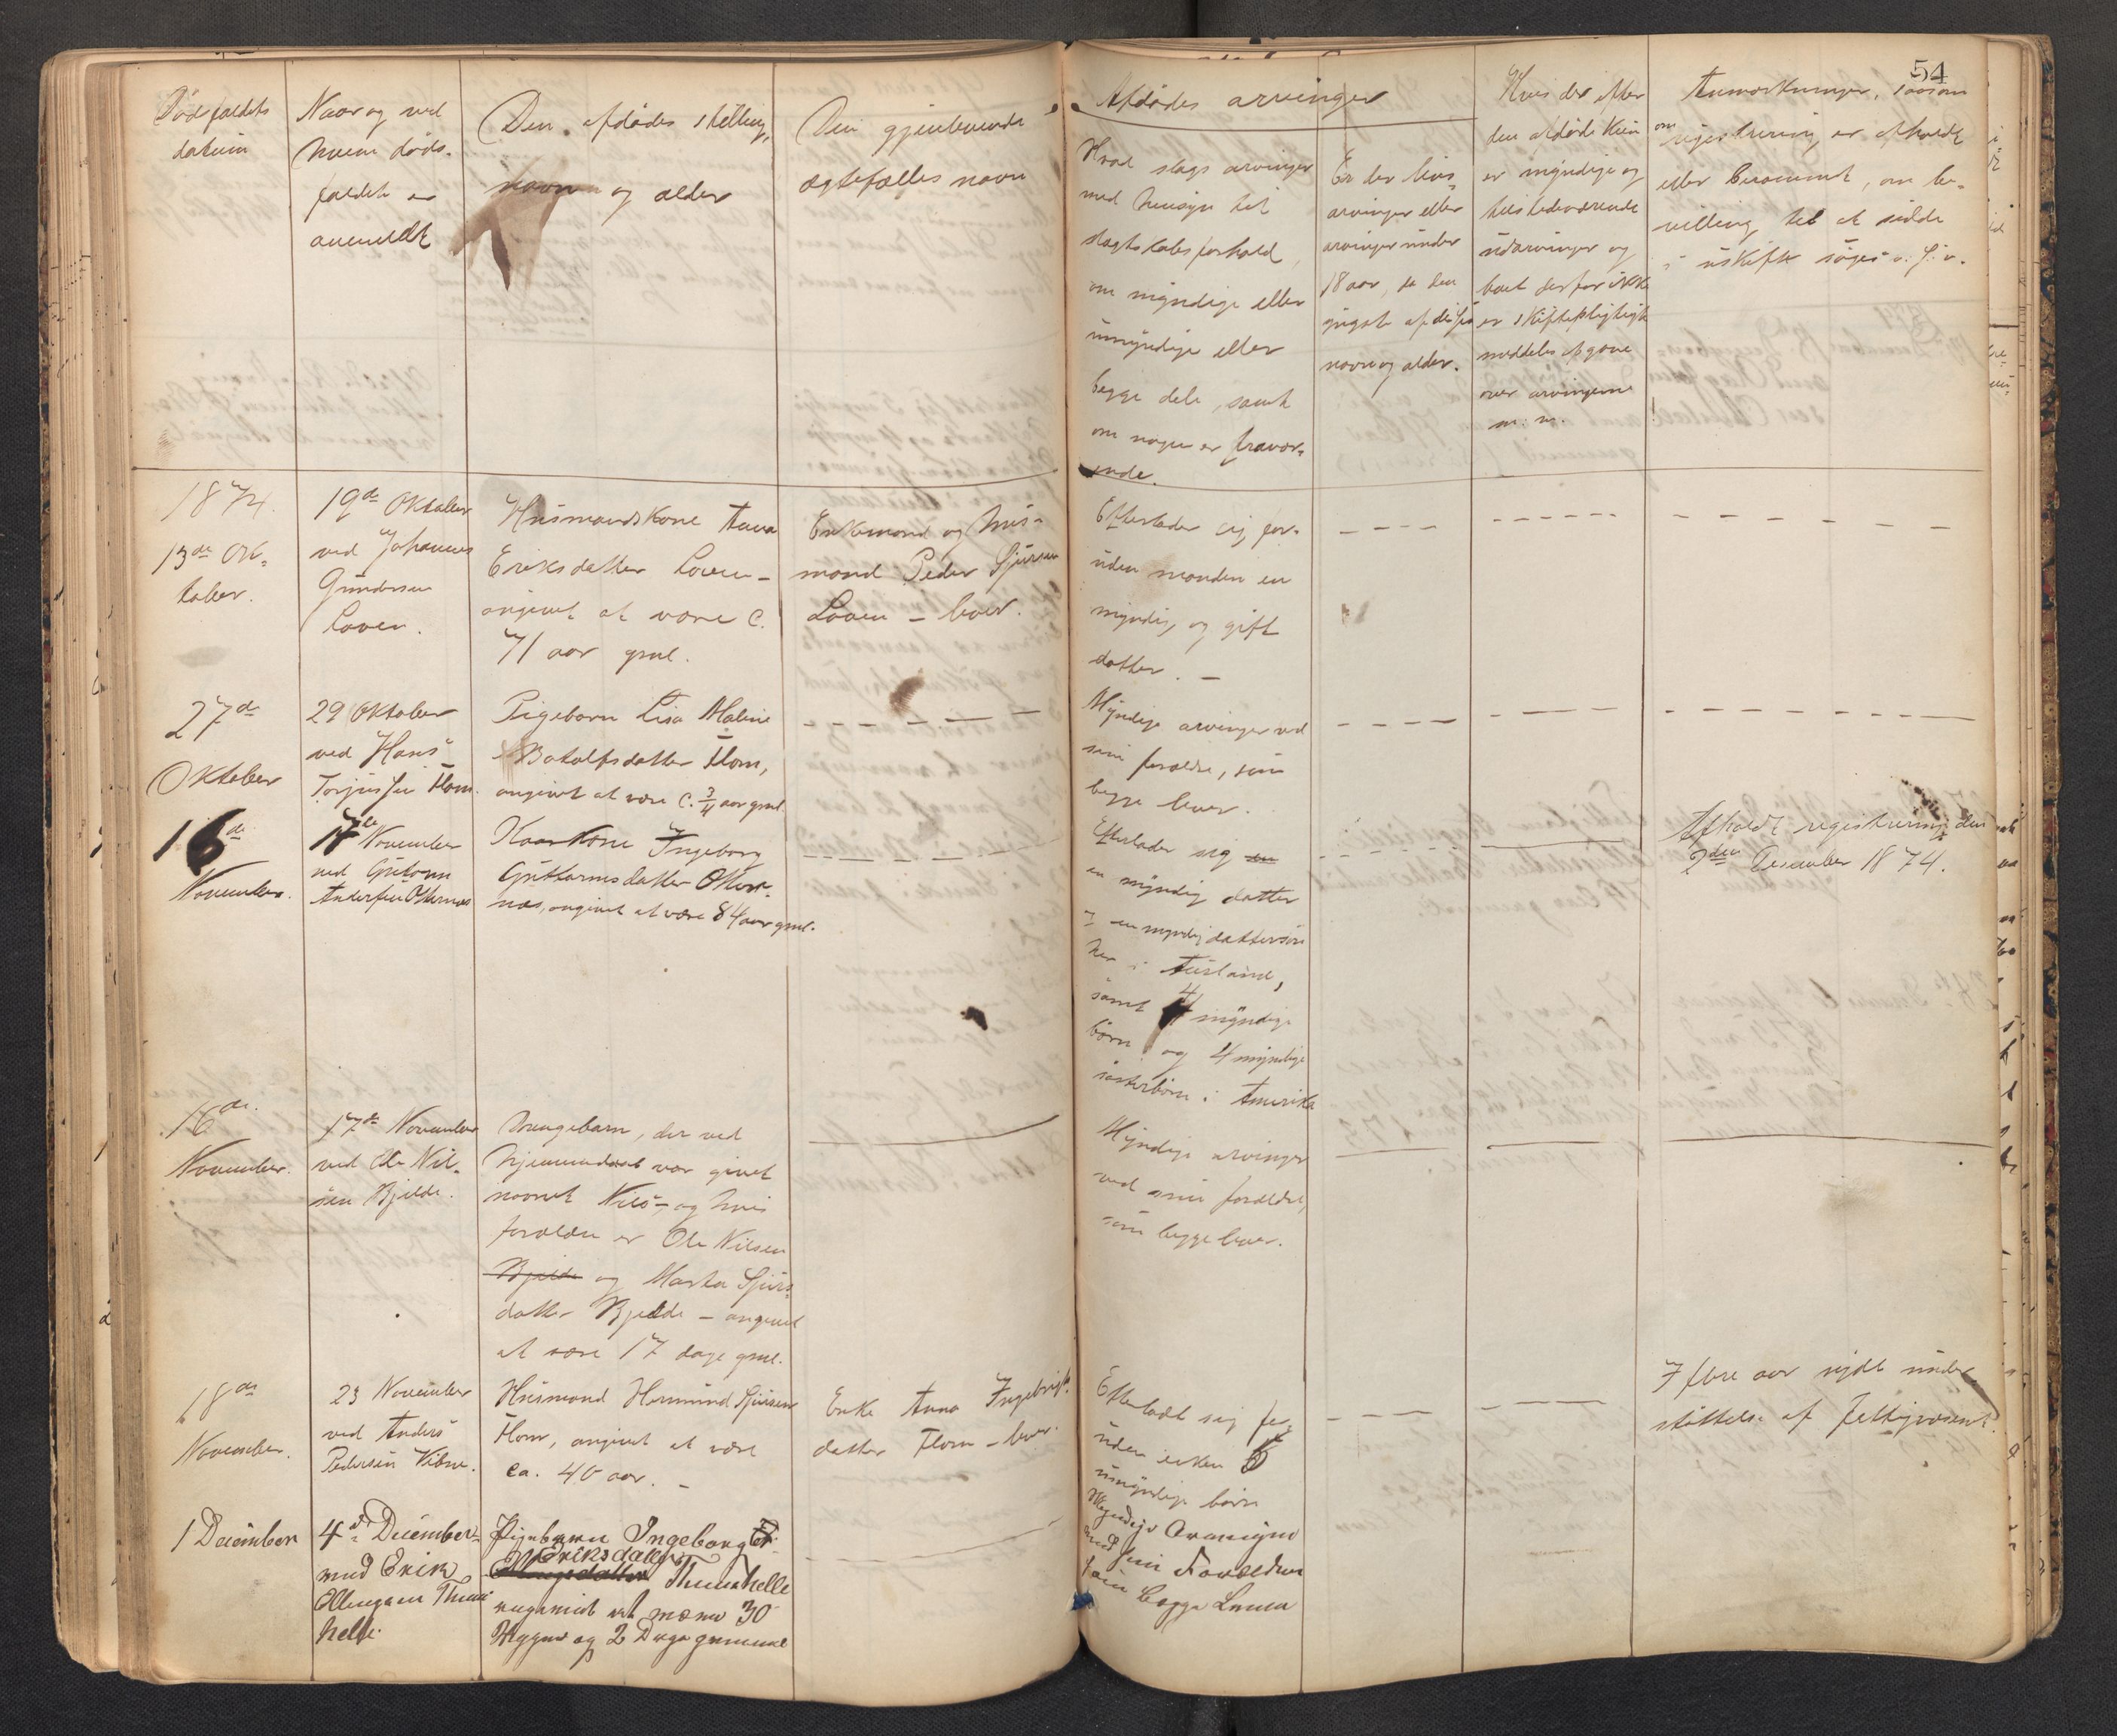 54
Dødsfaldets
datum
Naar og ved
hvem døds-
faldet er
anmeldt
Den afdødes stilling,
navn og alder
Den gjenlevende
ægtefælles navn
Afdødes arvinger
Hvad slags arvinger
med hensyn til
slægtskabsforhold,
om myndige eller
umyndige eller
begge dele, samt
om nogen er fravær-
ende.
Er der livs-
arvinger eller
arvinger under
18 aar, da den
yngste af disses
navn og alder.
Hvis der efter
den afdøde kun
er myndige og
tilstedeværende
udarvinger og
boet derfor ikke
er skiftepligtigt
meddeles opgave
over arvingerne
m. m.
Anmærkninger, saasom
om registrering er afholdt
eller berammet, om be-
villing til at sidde
i uskifte søges o. s. v.
1874.
13de Ok-
tober.
19de Oktober
ved Johannes
Gundersen
Loven.
Husmandskone Anna
Eriksdatter Loven -
angivet at være c.
71 aar gml.
Enkemand og hus-
mand Peder Sjursen
Loven - lever.
Efterlader sig for-
uden manden en
myndig og gift
datter. -
27de
Oktober
29 Oktober
ved Hans
Torjussen Flom.
Pigebarn Lisa Maline
Botolfsdatter Flom,
angivet at være c. 3/4 aar gml.
Myndige arvinger ved
sine forældre, som
begge lever.
16de
November.
17de November
ved Guttorm
Andersen Otternes
Kaarkone Ingeborg
Guttormsdatter Otter-
nes, angivet at være 84 aar gml.
Efterlader sig en
en myndig datter
og en myndig dattersøn
her i Aurland,
samt 4 myndige
børn og 4 myndige
søsterbørn i Amerika
Afholdt registrering den
2den December 1874.
16de
November.
17de November
ved Ole Nil-
sen Bjelde.
Drengebarn, der ved
hjemmedaab var givet
navnet Nils -, og hvis
forældre er Ole Nilsen
Bjelde og Marta Sjurs-
datter Bjelde - angivet
at være 17 dage gml.
Myndige arvinger
ved sine forældre,
som begge lever.
18de
November.
23 November
ved Anders
Pedersen Vibne.
Husmand Hermund Sjursen
Flom, angivet at være
ca. 40 aar. -
Enke Anna Ingebrigts-
datter Flom - lever.
Efterladt sig for-
uden enken 6
umyndige børn
I flere aar nydt under-
støttelse af fattigvæsenet.
1 December
4de December
med Erik
Ellingsen Thune
helle.
Pigebarn Ingeborg Er
Eriksdatter
Ellingsdatter Thunehelle
angivet at være 30
Uger og 2 Dage gammel
Myndige Arvinger
ved sine Forældre
som begge Lever